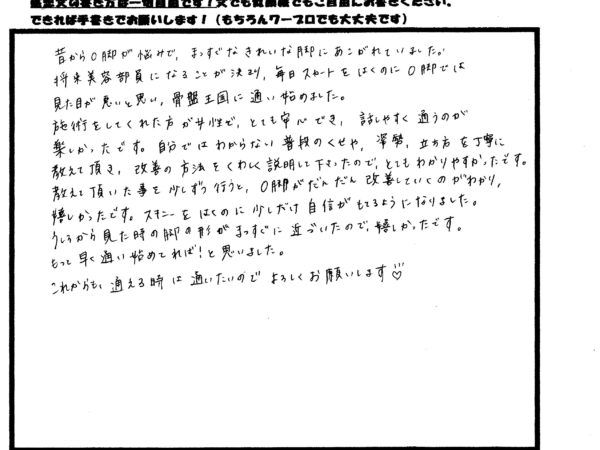 できれば手書きでお願いします！（もちろんワープロでも大丈夫です）
昔からO脚が悩みで、まっすぐなきれいな脚にあこがれていました。
将来美容部員になることが決まり、毎日スカートをはくのにO脚では
見た目が悪いと思い、骨盤王国に通い始めました。
施術をしてくれた方が女性で、とても安心でき、話しやすく通うのが
楽しかったです。自分ではわからない普段のくせや、姿勢、立ち方を丁寧に
教えて頂き、改善の方法をくわしく説明して下さったので、とてもわかりやすかったです。
教えて頂いた事を少しずつ行うと、O脚がだんだん改善していくのがわかり、
嬉しかったです。スキニーをはくのに少しだけ自信がもてるようになりました。
うしろから見た時の脚の形がまっすぐに近づいたので嬉しかったです。
もっと早く通い始めてれば！と思いました。
これからも、通える時は通いたいのでよろしくお願いします♡